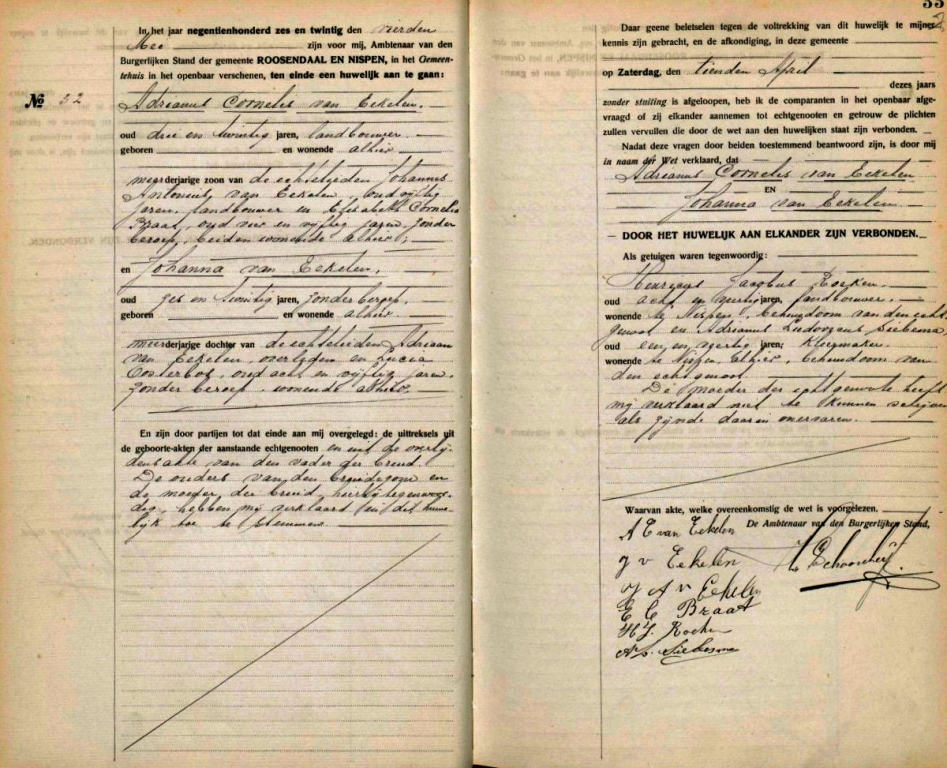 In het jaar negentienhonderd zes en twintig den vierden
Mei zijn voor mij, Ambtenaar van den
Burgerlijken Stand der gemeente ROOSENDAAL EN NISPEN, in het Gemeen-
tehuis in het openbaar verschenen, ten einde een huwelijk aan te gaan:
№ 32
Adrianus Cornelis van Eekelen,
oud drie en twintig jaren, landbouwer
geboren en wonende alhier
meerderjarige zoon van de echtelieden Johannes
Antonius van Eekelen, oud vijftig
jaren, landbouwer en Elisabeth Cornelia
Braat, oud vier en vijftig jaren, zonder
beroep, beiden wonende alhier;
en Johanna van Eekelen,
oud zes en twintig jaren, zonder beroep,
geboren en wonende alhier
meerderjarige dochter van de echtelieden Adriaan
van Eekelen, overleden en Lucia
Oosterbos, oud acht en vijftig jaren,
zonder beroep, wonende alhier.
En zijn door partijen tot dat einde aan mij overgelegd: de uittreksels uit
de geboorte-akten der aanstaande echtgenooten en uit de overlij-
densakte van den vader der bruid.
De ouders van den bruidegom en
de moeder der bruid, hierbij tegenwoor-
dig, hebben mij verklaard in dit huwe-
lijk toe te stemmen
33
Daar geene beletselen tegen de voltrekking van dit huwelijk te mijner
kennis zijn gebracht, en de afkondiging, in deze gemeente
op Zaterdag, den tienden April
dezes jaars
zonder stuiting is afgeloopen, heb ik de comparanten in het openbaar afge-
vraagd of zij elkander aannemen tot echtgenooten en getrouw de plichten
zullen vervullen die door de wet aan den huwelijken staat zijn verbonden.
Nadat deze vragen door beiden toestemmend beantwoord zijn, is door mij
in naam der Wet verklaard, dat
Adrianus Cornelis van Eekelen
EN
Johanna van Eekelen
DOOR HET HUWELIJK AAN ELKANDER ZIJN VERBONDEN.
Als getuigen waren tegenwoordig:
Henricus Jacobus Rocken
oud acht en jaren, landbouwer
wonende te Nispen, behuwdoom van den echt-
genoot en Adrianus Ludovicus Siebesma
oud een en veertig jaren, kleermaker
wonende te Nispen, alhier, behuwdoom van
den echtgenoot.
De moeder der echtgenoote heeft
mij verklaard niet te kunnen schrijven
als zijnde daarin onervaren.
Waarvan akte, welke overeenkomstig de wet is voorgelezen.
De Ambtenaar van den Burgerlijken Stand,
A C van Eekelen
J v Eekelen
J A v Eekelen
E C Braat
H J. Rocken
A L. Siebesma